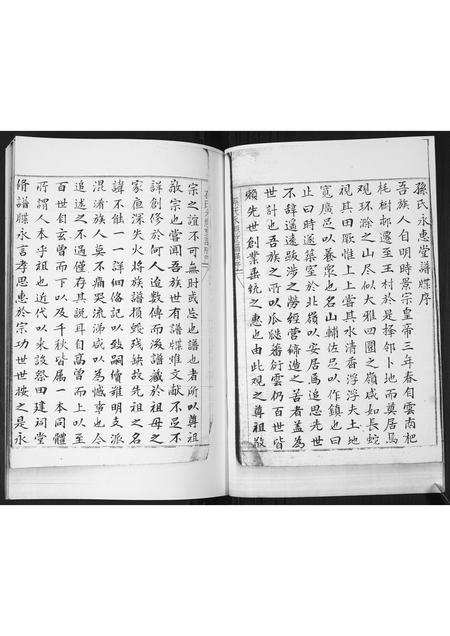 孫氏永惠堂譜牒序
吾族人自明時景宗皇帝三年春自雲南杷
枆樹邨遷至王村於是擇邻卜地而奠居焉
观环滁之山尽似大雅四圍之嶺咸如長蛇
視其田厥惟上上嘗其水清香浮浮夫土地
寬廣足以養衆也名山輔佐足以作鎮也曰
止曰時遂築室於北嶺以安居焉追思先世
不辞遥遠跋涉之勞經营締造之苦者盖為
世計也吾族之所以瓜瓞蕃衍雲仍百世皆
賴先世創業垂統之惠也由此观之尊祖敬
宗之誼不可無時或忘也譜也者所以尊祖
敬宗也嘗闻吾族世有譜牒惟文献不足不
詳創修於何人迨數傳而後譜藏於祖母之
家面深失火將族譜損蝬残缺故先祖之名
諱不能一一詳细俻記以致嗣續雖明支派
混淆族人莫不痛哭流涕咸以為憾事也今
追述之不過僅存其説耳自高曾而上以至
百世自玄曾而下以及千秋皆属一本同體
所謂人本乎祖也近代以來設祭田建祠堂
脩譜牒永言孝思惠於宗功世世按之是永